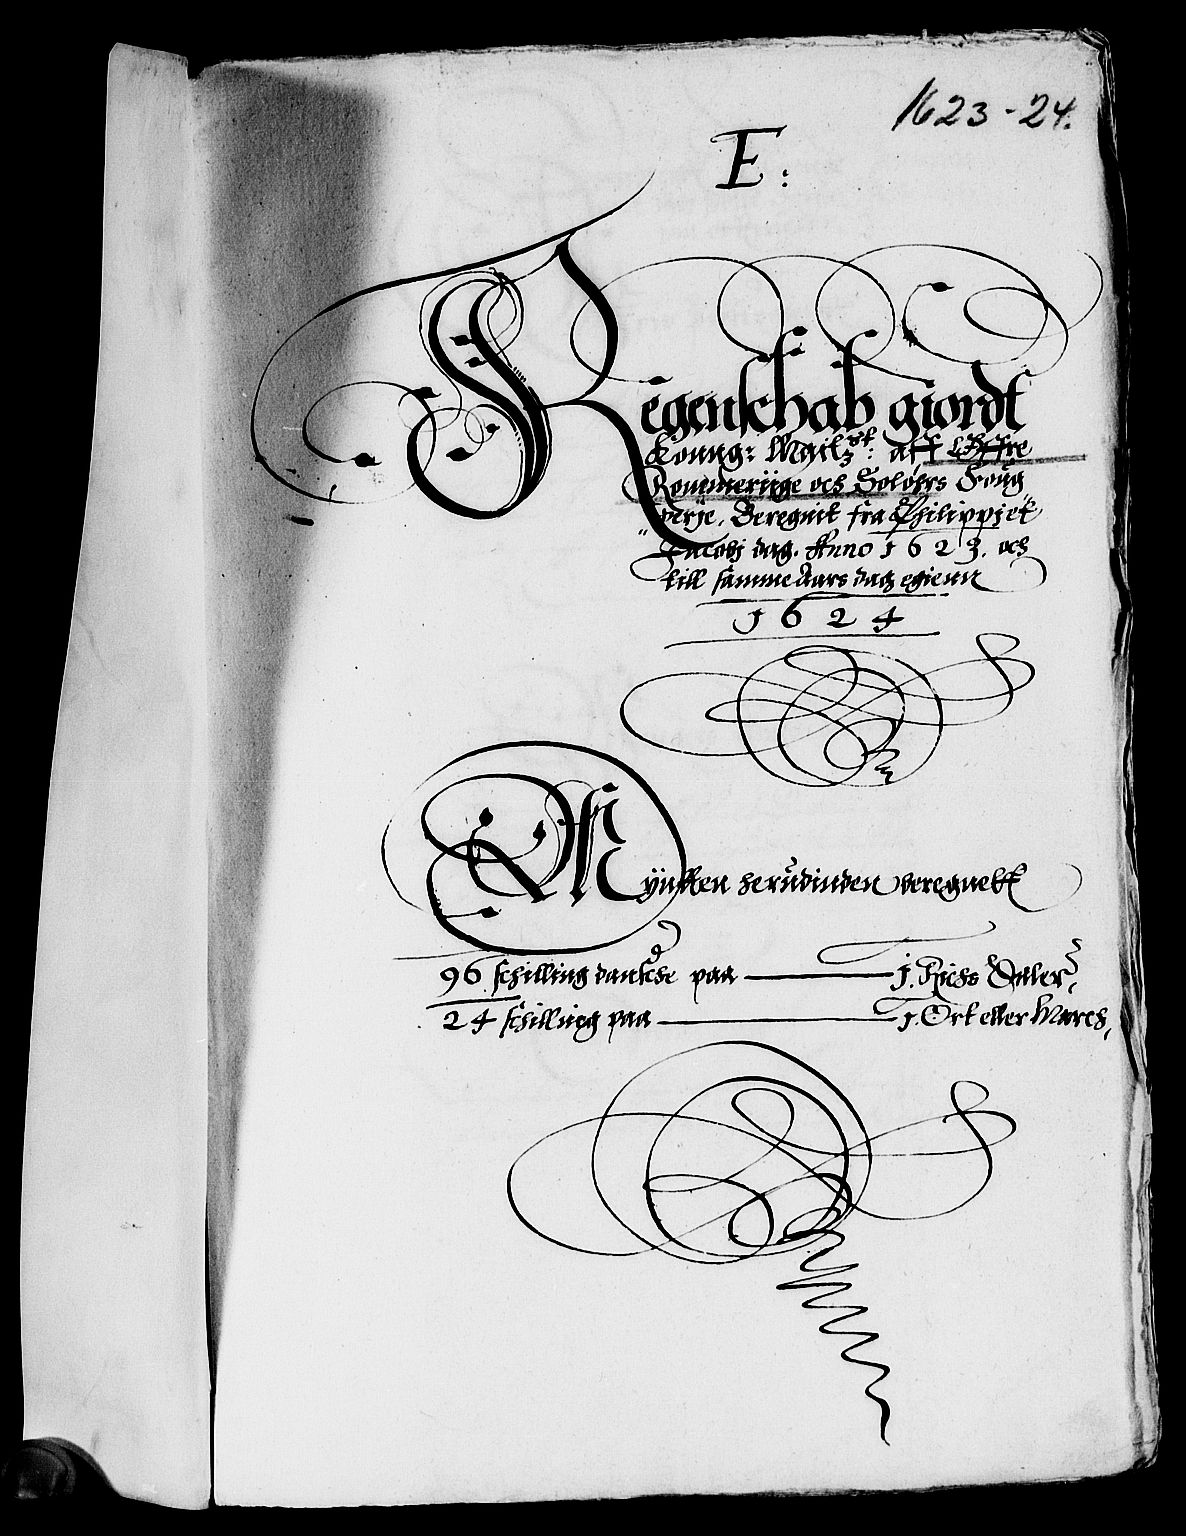 1623-24.
E:
Regenschab giordt
Konng: Maitzst: aff Øffre
Rommeriige och Soløers Foug
derje, Beregnit fra Philippj et
Jacobj dag. Anno 1623. och
till samme Aars dag egienn
1624
Mÿntten herudinden beregnett
96 schilling danske paa — j. Richs Daler,
24 schilling paa — j. Ort eller March,